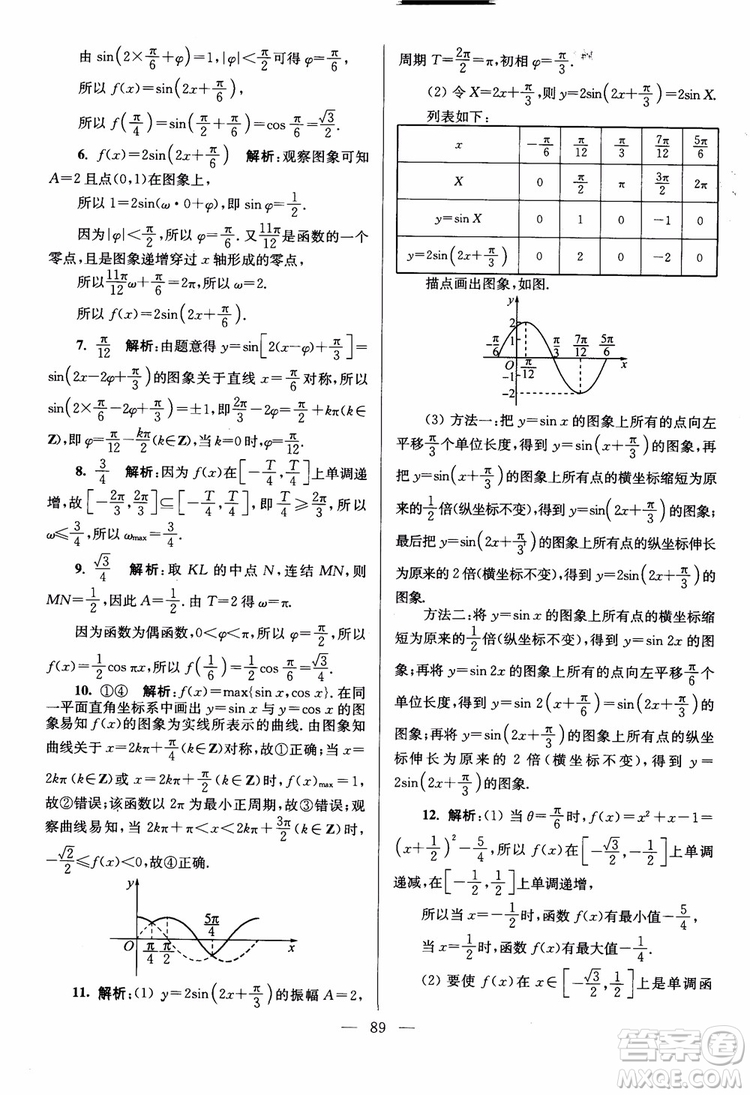 由 sin(2×π/6+φ)=1,|φ|<π/2可得 φ=π/6,
所以 f(x)=sin(2x+π/6),
所以 f(π/4)=sin(2×π/4+π/6)=cos π/6=√3/2.
6. f(x)=2sin(2x+π/6) 解析:观察图象可知
A=2 且点(0,1)在图象上,
所以 1=2sin(ω·0+φ),即 sin φ=1/2.
因为|φ|<π/2,所以 φ=π/6. 又11π/12是函数的一个
零点,且是图象递增穿过 x 轴形成的零点,
所以11π/12 ω+π/6=2π,所以 ω=2.
所以 f(x)=2sin(2x+π/6).
7. π/12 解析:由题意得 y=sin[2(x-φ)+π/3]=
sin(2x-2φ+π/3)的图象关于直线 x=π/6对称,所以
sin(2×π/6-2φ+π/3)=±1,即2π/3-2φ=π/2+kπ(k∈
Z),即 φ=π/12-kπ/2(k∈Z). 当 k=0 时,φ=π/12.
8. 3/4 解析:因为 f(x)在[-T/4,T/4]上单调递
增,故[-2π/3,2π/3]⊆[-T/4,T/4],即T/4≥2π/3. 所以
ω≤3/4,所以 ωmax=3/4.
9. √3/4 解析:取 KL 的中点 N,连结 MN,则
MN=1/2,因此 A=1/2. 由 T=2 得 ω=π.
因为函数为偶函数,0<φ<π,所以 φ=π/2,所以
f(x)=1/2cos πx,所以 f(1/6)=1/2cos π/6=√3/4.
10. ①④ 解析:f(x)=max{sin x,cos x}. 在同
一平面直角坐标系中画出 y=sin x 与 y=cos x 的图
象易知 f(x)的图象为实线所表示的曲线. 由图象知
曲线关于 x=2kπ+π/4(k∈Z)对称,故①正确;当 x=
2kπ(k∈Z)或 x=2kπ+π/2(k∈Z)时,f(x)max=1,
故②错误;该函数以 2π 为最小正周期,故③错误;观
察曲线易知,当 2kπ+π<x<2kπ+3π/2(k∈Z)时,
-√2/2≤f(x)<0,故④正确.
y
5π/4
O π/4 π/2 x
11. 解析:(1) y=2sin(2x+π/3)的振幅 A=2,
周期 T=2π/2=π,初相 φ=π/3.
(2) 令 X=2x+π/3,则 y=2sin(2x+π/3)=2sin X.
列表如下:
x -π/6 π/12 π/3 7π/12 5π/6
X 0 π/2 π 3π/2 2π
y=sin X 0 1 0 -1 0
y=2sin(2x+π/3) 0 2 0 -2 0
描点画出图象,如图.
y
2
1
-π/6 π/3 7π/12 5π/6
O π/12 x
-1
-2
(3) 方法一:把 y=sin x 的图象上所有的点向左
平移π/3个单位长度,得到 y=sin(x+π/3)的图象;再
把 y=sin(x+π/3)的图象上所有点的横坐标缩短为
原来的1/2倍(纵坐标不变),得到 y=sin(2x+π/3)的图象;
最后把 y=sin(2x+π/3)的图象上所有点的纵坐标伸长
为原来的 2 倍(横坐标不变),得到 y=2sin(2x+π/3)的
图象.
方法二:将 y=sin x 的图象上所有点的横坐标缩
短为原来的1/2倍(纵坐标不变),得到 y=sin 2x 的图
象;再将 y=sin 2x 的图象上所有的点向左平移π/6个
单位长度,得到 y=sin 2(x+π/6)=sin(2x+π/3)的图
象;再将 y=sin(2x+π/3)的图象上所有点的纵坐
标伸长为原来的 2 倍(横坐标不变),得到 y=
2sin(2x+π/3)的图象.
12. 解析:(1) 当 θ=π/6时,f(x)=x²+x-1=
(x+1/2)²-5/4,所以 f(x)在[-√3/2,-1/2]上单调
递减,在[-1/2,1/2]上单调递增,
所以当 x=-1/2时,函数 f(x)有最小值-5/4,
当 x=1/2时,函数 f(x)有最大值-1/4.
(2) 要使 f(x)在 x∈[-√3/2,1/2]上是单调函
— 89 —
答案圈